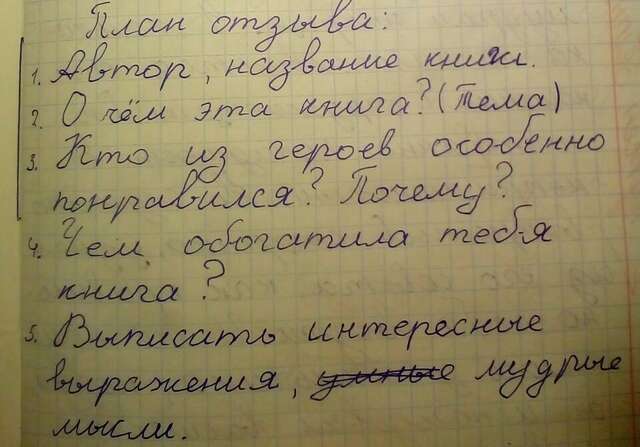 План отзыва:
1. Автор, название книги.
2. О чём эта книга? (Тема)
3. Кто из героев особенно
понравился? Почему?
4. Чем обогатила тебя
книга?
5. Выписать интересные
выражения, умные мудрые
мысли.